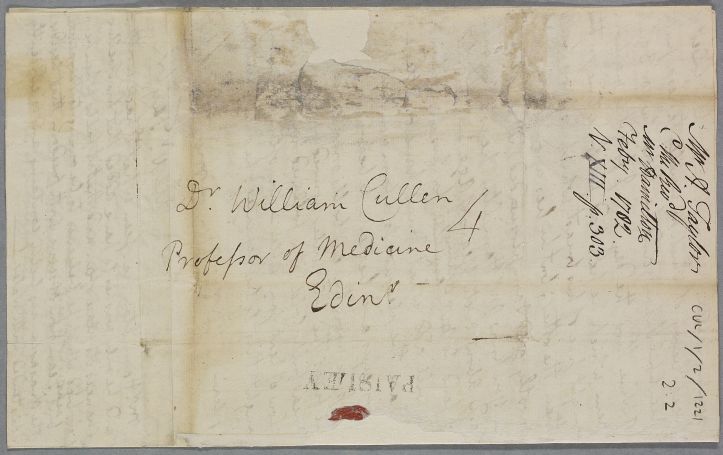 Dr. William Cullen
4
Professor of Medicine
Edinr.
PAISLEY
Mr J Taylor
Mr Hamilton
Feby. 1782.
V. XIII p. 303.
CUL/1/2/1221
2.2